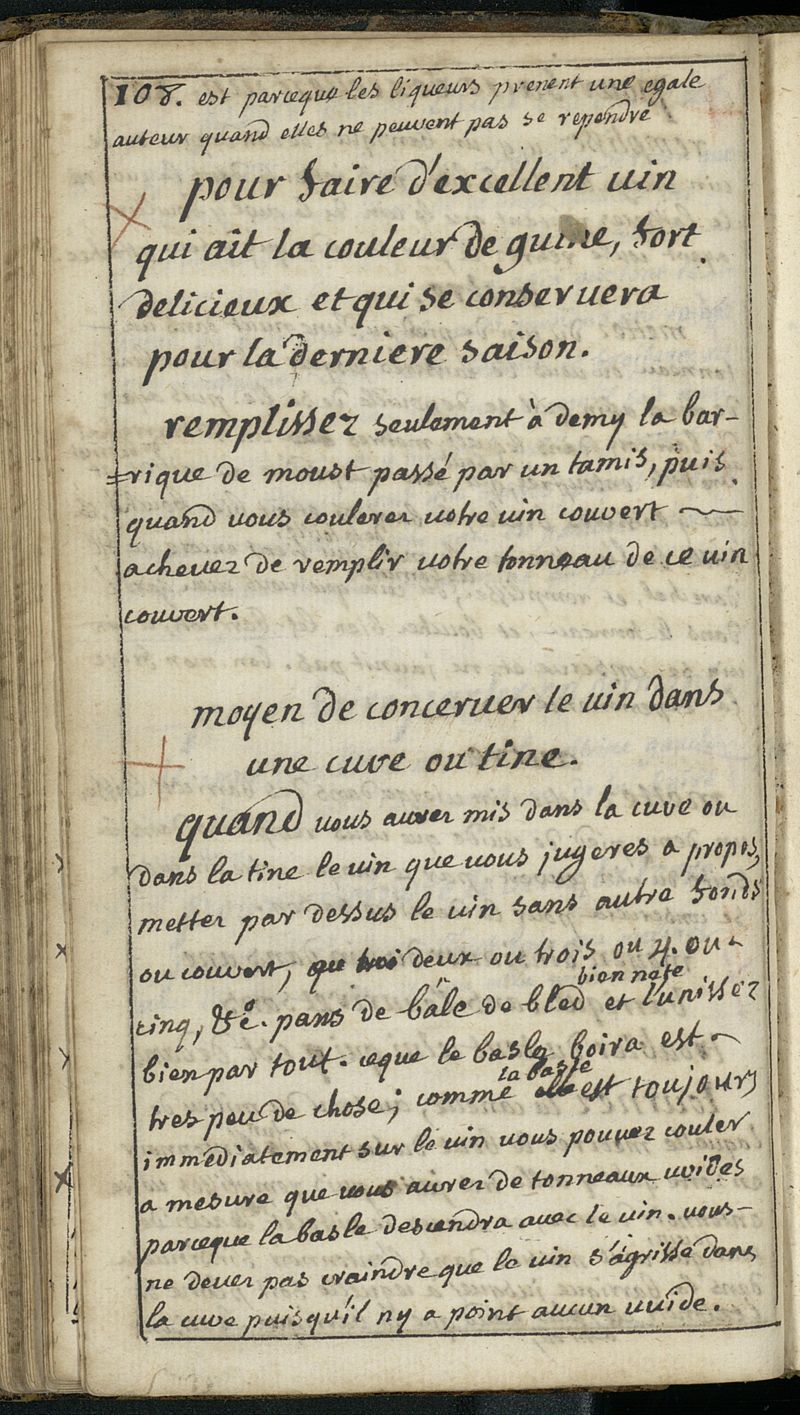 108. est parceque les liqueurs prenent une egale
auteur quand elles ne peuvent pas se rependre
pour faire d'excellent uin
qui aît la couleur de guine, fort
delicieux et qui se conseruera
pour la derniere saison.
remplissez seulement à demy la bar-
=rique de moust passé par un tamis, puis
quand vous coulerez votre uin couvert
acheuez de remplir votre tonneau de ce uin
couvert.
moyen de conceruer le uin dans
une cuve ou tine.
quand vous aurez mis dans la cuve ou
dans la tine le uin que vous jugeres a propos,
mettez par dessus le uin sans autre fonds
ou couvert, deux ou trois ou 4. ou
cinq, &c. pans de bâle de bled bien nete et l'unissez
bien par tout. ceque le basle boira est
tres peu de chose; comme la basle est toujours
immediatement sur le uin vous pouuez couler
a mesure que vous aurez de tonneaux uuides
parceque la basle descendra avec le uin. vous
ne deuez pas craindre que le uin s'agrisse dans
la cuve puisqu'il ny a point aucun uuide.